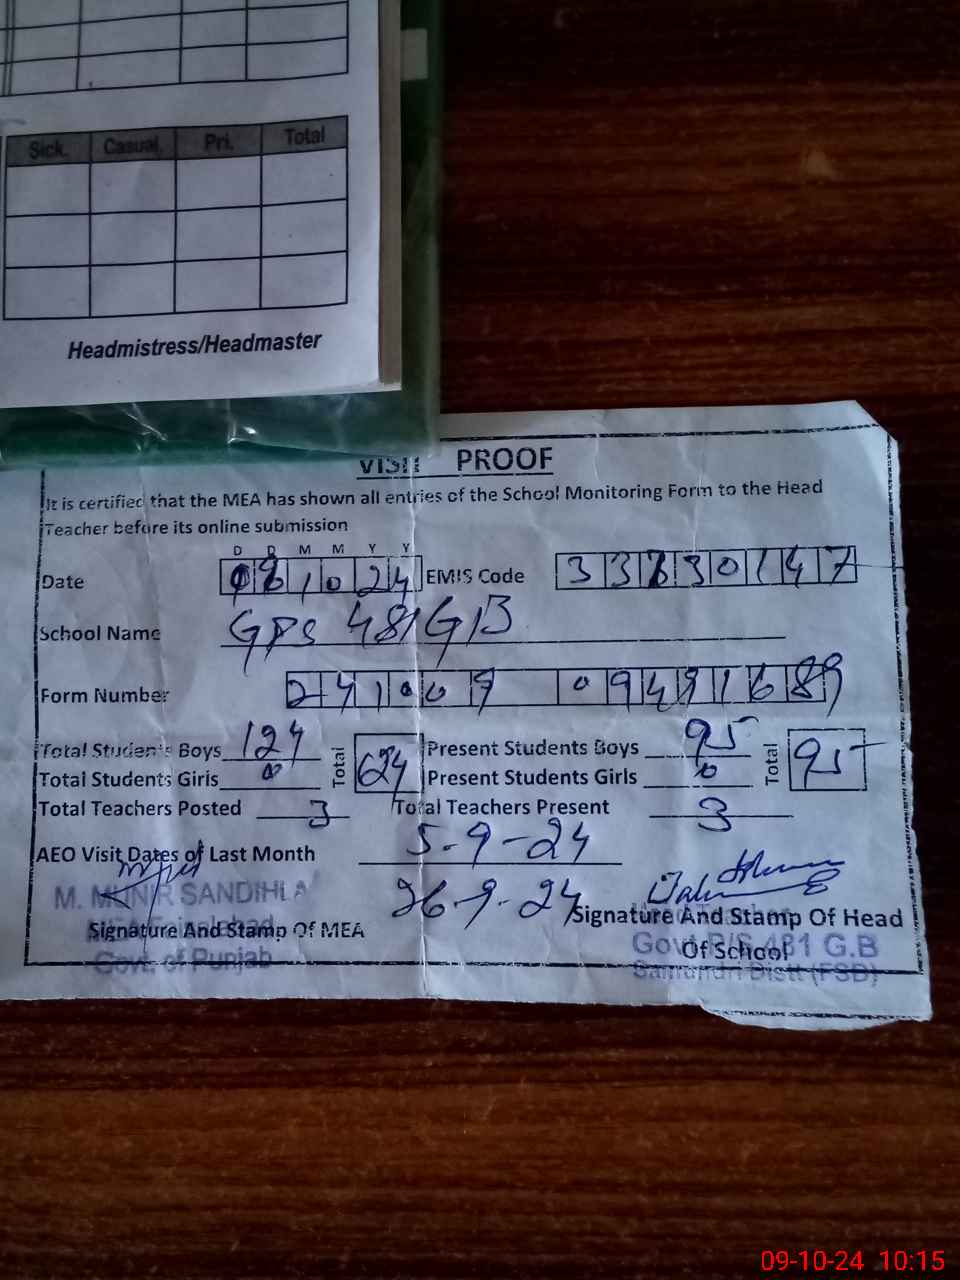 Sick. Casual. Pri. Total
Headmistress/Headmaster
VISIT PROOF
It is certified that the MEA has shown all entries of the School Monitoring Form to the Head
Teacher before its online submission
D D M M Y Y
Date 1024 EMIS Code 33730147
School Name GPS 481 GB
Form Number 241009
Total Students Boys 124 Total Present Students Boys 95 Total 95
Total Students Girls 0 Present Students Girls 0
Total Teachers Posted 3 Total Teachers Present 3
AEO Visit Dates of Last Month 5-9-24
26-9-24
M. MUNIR SANDIHLA
MEA Faisalabad
Signature And Stamp Of MEA
Govt. of Punjab
Signature And Stamp Of Head
Of School
Govt P/S 481 G.B
Samundri Distt (FSD)
09-10-24 10:15